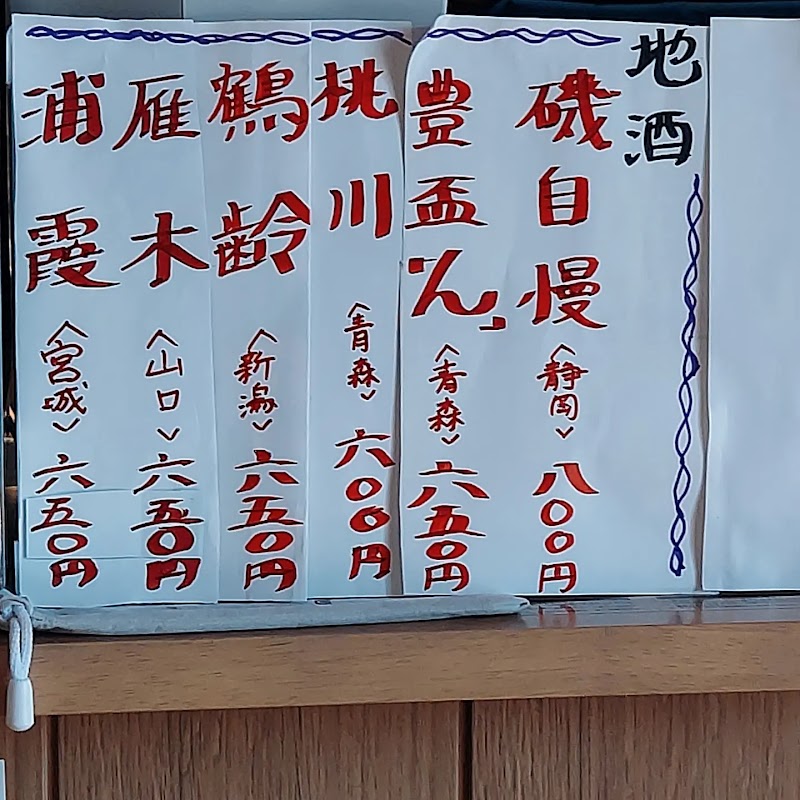 地酒
磯自慢〈静岡〉八〇〇円
豊盃ん〈青森〉六五〇円
桃川〈青森〉六〇〇円
鶴齢〈新潟〉六五〇円
雁木〈山口〉六五〇円
浦霞〈宮城〉六五〇円